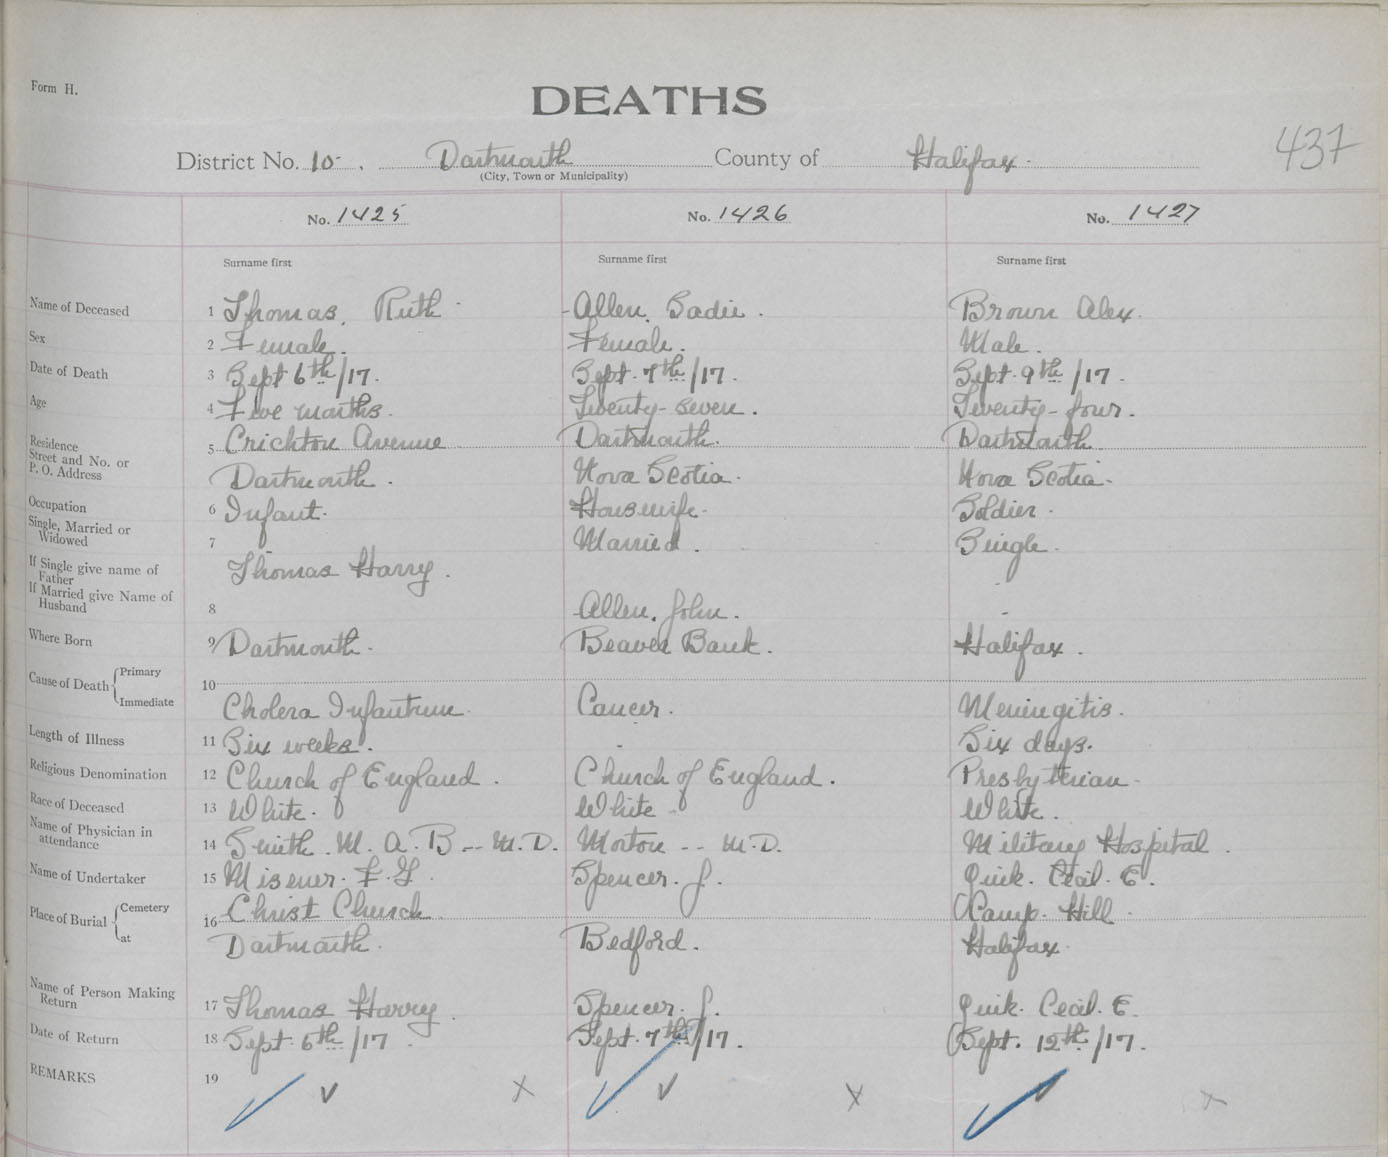 Form H.
DEATHS
437
District No. 10 Dartmouth County of Halifax
(City, Town or Municipality)
No. 1425 No. 1426 No. 1427
Surname first Surname first Surname first
Name of Deceased 1 Thomas, Ruth Allen, Sadie. Brown Alex.
Sex 2 Female. Female. Male.
Date of Death 3 Sept 6th/17. Sept. 7th/17. Sept. 9th/17.
Age 4 Five months. Twenty-seven. Twenty-four.
Residence Street and No. or P. O. Address 5 Crichton Avenue Dartmouth. Dartmouth
Dartmouth. Nova Scotia. Nova Scotia.
Occupation 6 Infant. Housewife. Soldier.
Single, Married or Widowed 7 Married. Single.
If Single give name of Father Thomas Harry.
If Married give Name of Husband 8 Allen, John.
Where Born 9 Dartmouth. Beaver Bank. Halifax.
Cause of Death Primary 10
Immediate Cholera Infantum Cancer. Meningitis.
Length of Illness 11 Six weeks. - Six days.
Religious Denomination 12 Church of England. Church of England. Presbyterian
Race of Deceased 13 White. White White.
Name of Physician in attendance 14 Smith. M. A. B -- M.D. Morton -- M.D. Military Hospital.
Name of Undertaker 15 Misener. F. Spencer. J. Quik. Cecil. E.
Place of Burial Cemetery 16 Christ Church Camp. Hill
at Dartmouth. Bedford. Halifax.
Name of Person Making Return 17 Thomas Harry. Spencer. J. Quik. Cecil. E.
Date of Return 18 Sept. 6th/17. Sept. 7th/17. Sept. 12th/17.
REMARKS 19